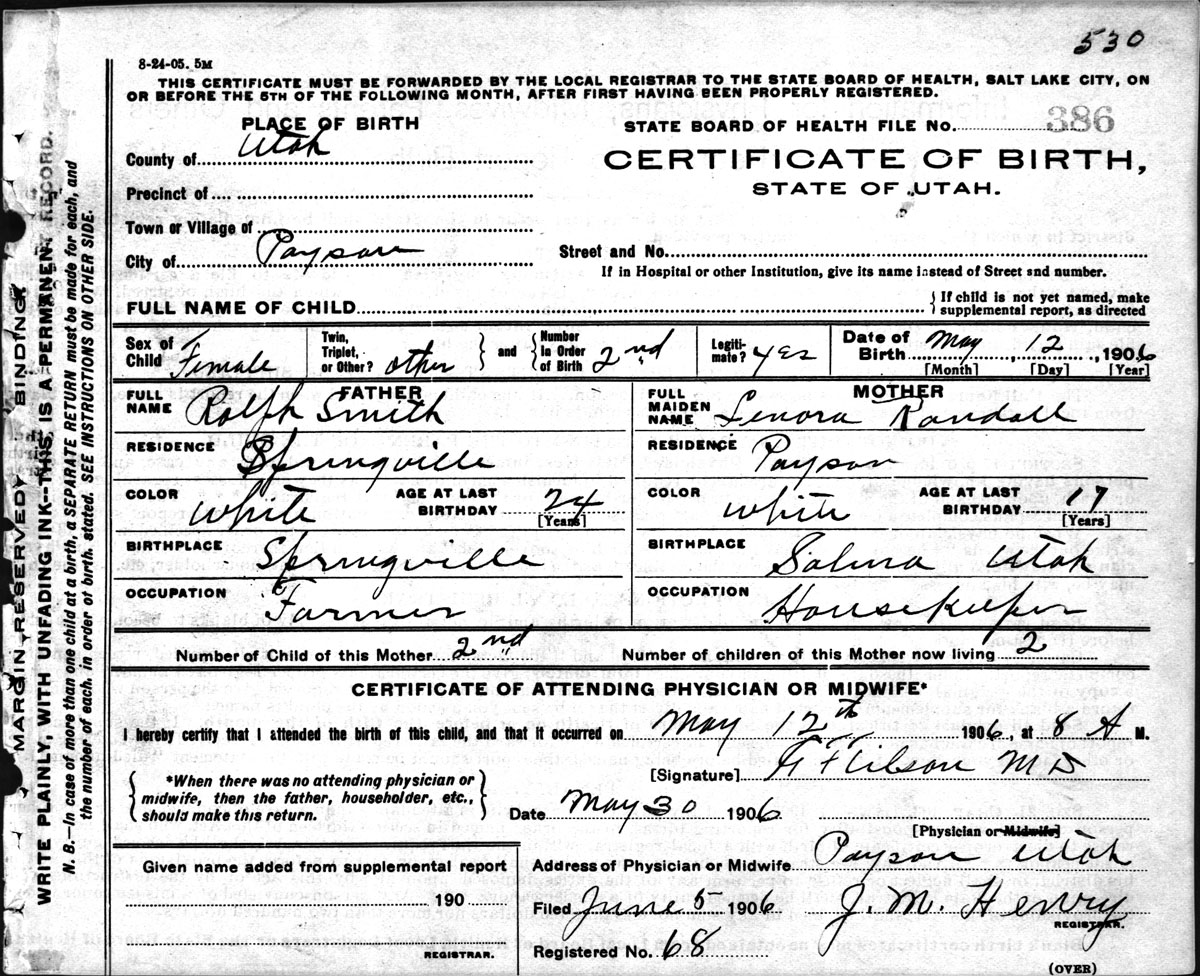 530
8-24-05. 5M
THIS CERTIFICATE MUST BE FORWARDED BY THE LOCAL REGISTRAR TO THE STATE BOARD OF HEALTH, SALT LAKE CITY, ON
OR BEFORE THE 5TH OF THE FOLLOWING MONTH, AFTER FIRST HAVING BEEN PROPERLY REGISTERED.
PLACE OF BIRTH
STATE BOARD OF HEALTH FILE No. 386
County of Utah
CERTIFICATE OF BIRTH,
STATE OF UTAH.
Precinct of
Town or Village of
City of Payson
Street and No.
If in Hospital or other Institution, give its name instead of Street snd number.
FULL NAME OF CHILD { If child is not yet named, make supplemental report, as directed
Sex of Child Female Twin, Triplet, or Other? other } and { Number in Order of Birth 2nd Legiti- mate? yes Date of Birth May, 12, 1906
[Month] [Day] [Year]
FATHER MOTHER
FULL NAME Ralph Smith FULL MAIDEN NAME Lenora Randall
RESIDENCE Springville RESIDENCE Payson
COLOR White AGE AT LAST BIRTHDAY 24 [Years] COLOR White AGE AT LAST BIRTHDAY 17 [Years]
BIRTHPLACE Springville BIRTHPLACE Salina Utah
OCCUPATION Farmer OCCUPATION Housekeeper
Number of Child of this Mother 2nd Number of children of this Mother now living 2
CERTIFICATE OF ATTENDING PHYSICIAN OR MIDWIFE*
I hereby certify that I attended the birth of this child, and that it occurred on May 12th 1906, at 8 A M.
{ *When there was no attending physician or midwife, then the father, householder, etc., should make this return. }
[Signature] M D
Date May 30 1906
[Physician or Midwife]
Given name added from supplemental report
Address of Physician or Midwife Payson Utah
190
Filed June 5 1906 J. M. Henry
REGISTRAR.
REGISTRAR.
Registered No. 68
(OVER)
MARGIN RESERVED BINDING
WRITE PLAINLY, WITH UNFADING INK--THIS IS A PERMANENT RECORD.
N. B.—In case of more than one child at a birth, a SEPARATE RETURN must be made for each, and
the number of each. in order of birth. stated. SEE INSTRUCTIONS ON OTHER SIDE.